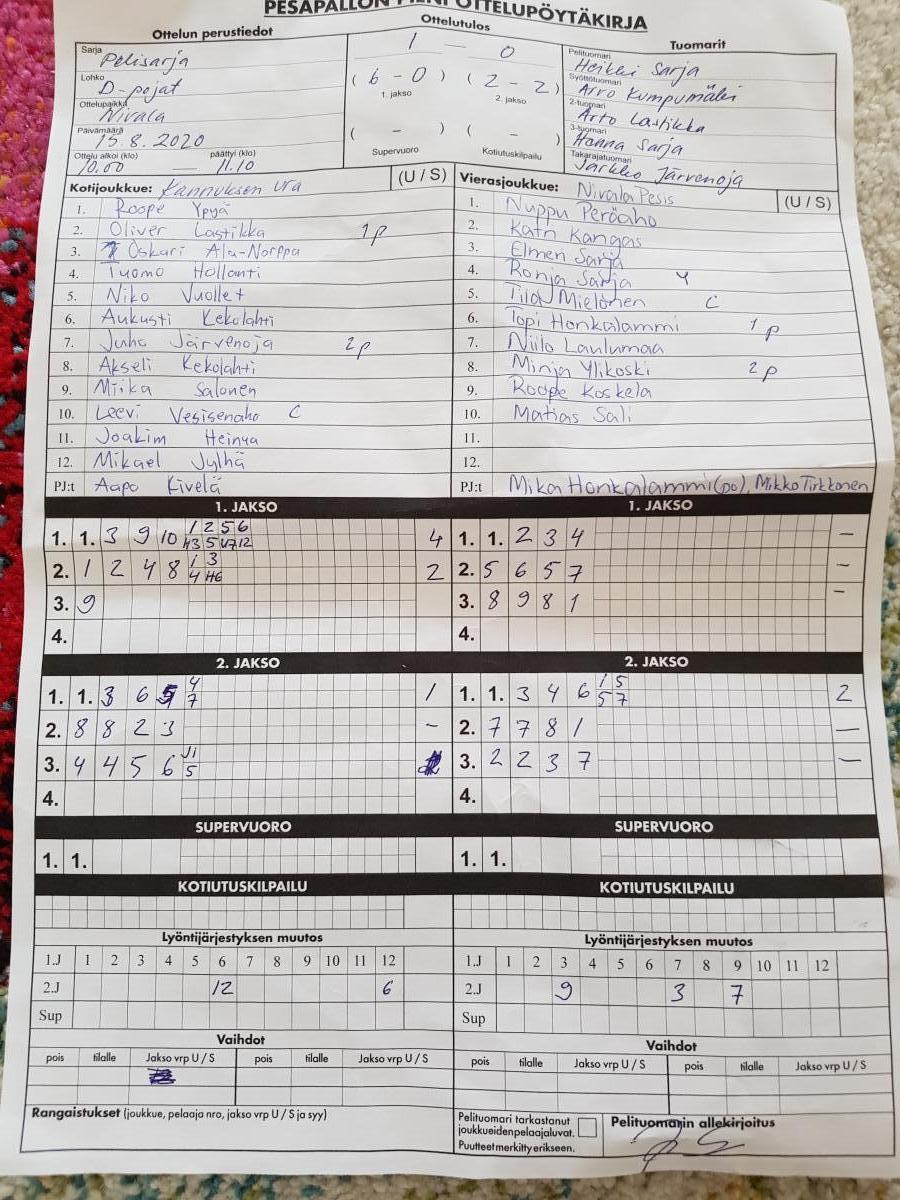 PESÄPALLON PIENI OTTELUPÖYTÄKIRJA
Ottelun perustiedot
Sarja Pelisarja
Lohko D-pojat
Ottelupaikka Nivala
Päivämäärä 15.8.2020
Ottelu alkoi (klo) päättyi (klo)
10.00 — 11.10
Ottelutulos
1 — 0
(6 - 0) (2 - 2)
1. jakso 2. jakso
( - ) ( - )
Supervuoro Kotiutuskilpailu
Tuomarit
Pelituomari Heikki Sarja
Syöttötuomari Arvo Kumpumäki
2-tuomari Arto Lastikka
3-tuomari Hanna Sarja
Takarajatuomari Jarkko Järvenoja
Kotijoukkue: Kannuksen Ura (U / S)
1. Roope Ypyä
2. Oliver Lastikka 1p
3. Oskari Ala-Norppa
4. Tuomo Hollanti
5. Niko Vuollet
6. Aukusti Kekolahti
7. Juho Järvenoja 2p
8. Akseli Kekolahti
9. Miika Salonen
10. Leevi Vesisenaho C
11. Joakim Heinua
12. Mikael Jylhä
PJ:t Aapo Kivelä
Vierasjoukkue: Nivala Pesis (U / S)
1. Nuppu Peräaho
2. Katri Kangas
3. Elmeri Sarja
4. Ronja Sarja Y
5. Tilda Mielonen C
6. Topi Honkalammi 1p
7. Niilo Laulumaa
8. Minja Ylikoski 2p
9. Roope Koskela
10. Matias Sali
11.
12.
PJ:t Mika Honkalammi (po), Mikko Tirkkonen
1. JAKSO
1. 1. 3 9 10 1 2 5 6 4
2. 1 2 4 8 1 3 2
3. 9
4.
1. JAKSO
1. 1. 2 3 4 –
2. 5 6 5 7 –
3. 8 9 8 1 –
4.
2. JAKSO
1. 1. 3 6 5 4 1
7
2. 8 8 2 3 –
3. 4 4 5 6
5
4.
2. JAKSO
1. 1. 3 4 6 1 5 2
5 7
2. 7 7 8 1 –
3. 2 2 3 7 –
4.
SUPERVUORO
1. 1.
SUPERVUORO
1. 1.
KOTIUTUSKILPAILU
KOTIUTUSKILPAILU
Lyöntijärjestyksen muutos
1.J 1 2 3 4 5 6 7 8 9 10 11 12
2.J 12 6
Sup
Lyöntijärjestyksen muutos
1.J 1 2 3 4 5 6 7 8 9 10 11 12
2.J 9 3 7
Sup
Vaihdot
pois tilalle Jakso vrp U / S pois tilalle Jakso vrp U / S
Vaihdot
pois tilalle Jakso vrp U / S pois tilalle Jakso vrp U / S
Rangaistukset (joukkue, pelaaja nro, jakso vrp U / S ja syy)
Pelituomari tarkastanut
joukkueidenpelaajaluvat.
Puutteet merkitty erikseen.
Pelituomarin allekirjoitus